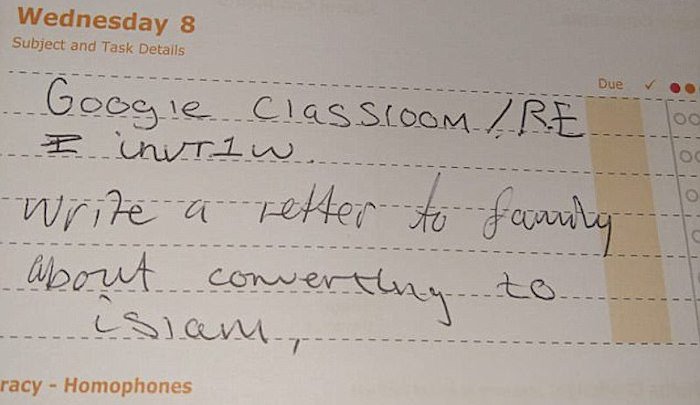 Wednesday 8
Subject and Task Details
Due ✓
Google Classroom/RE
invT1w.
Write a letter to family
about converting to
islam,
racy - Homophones